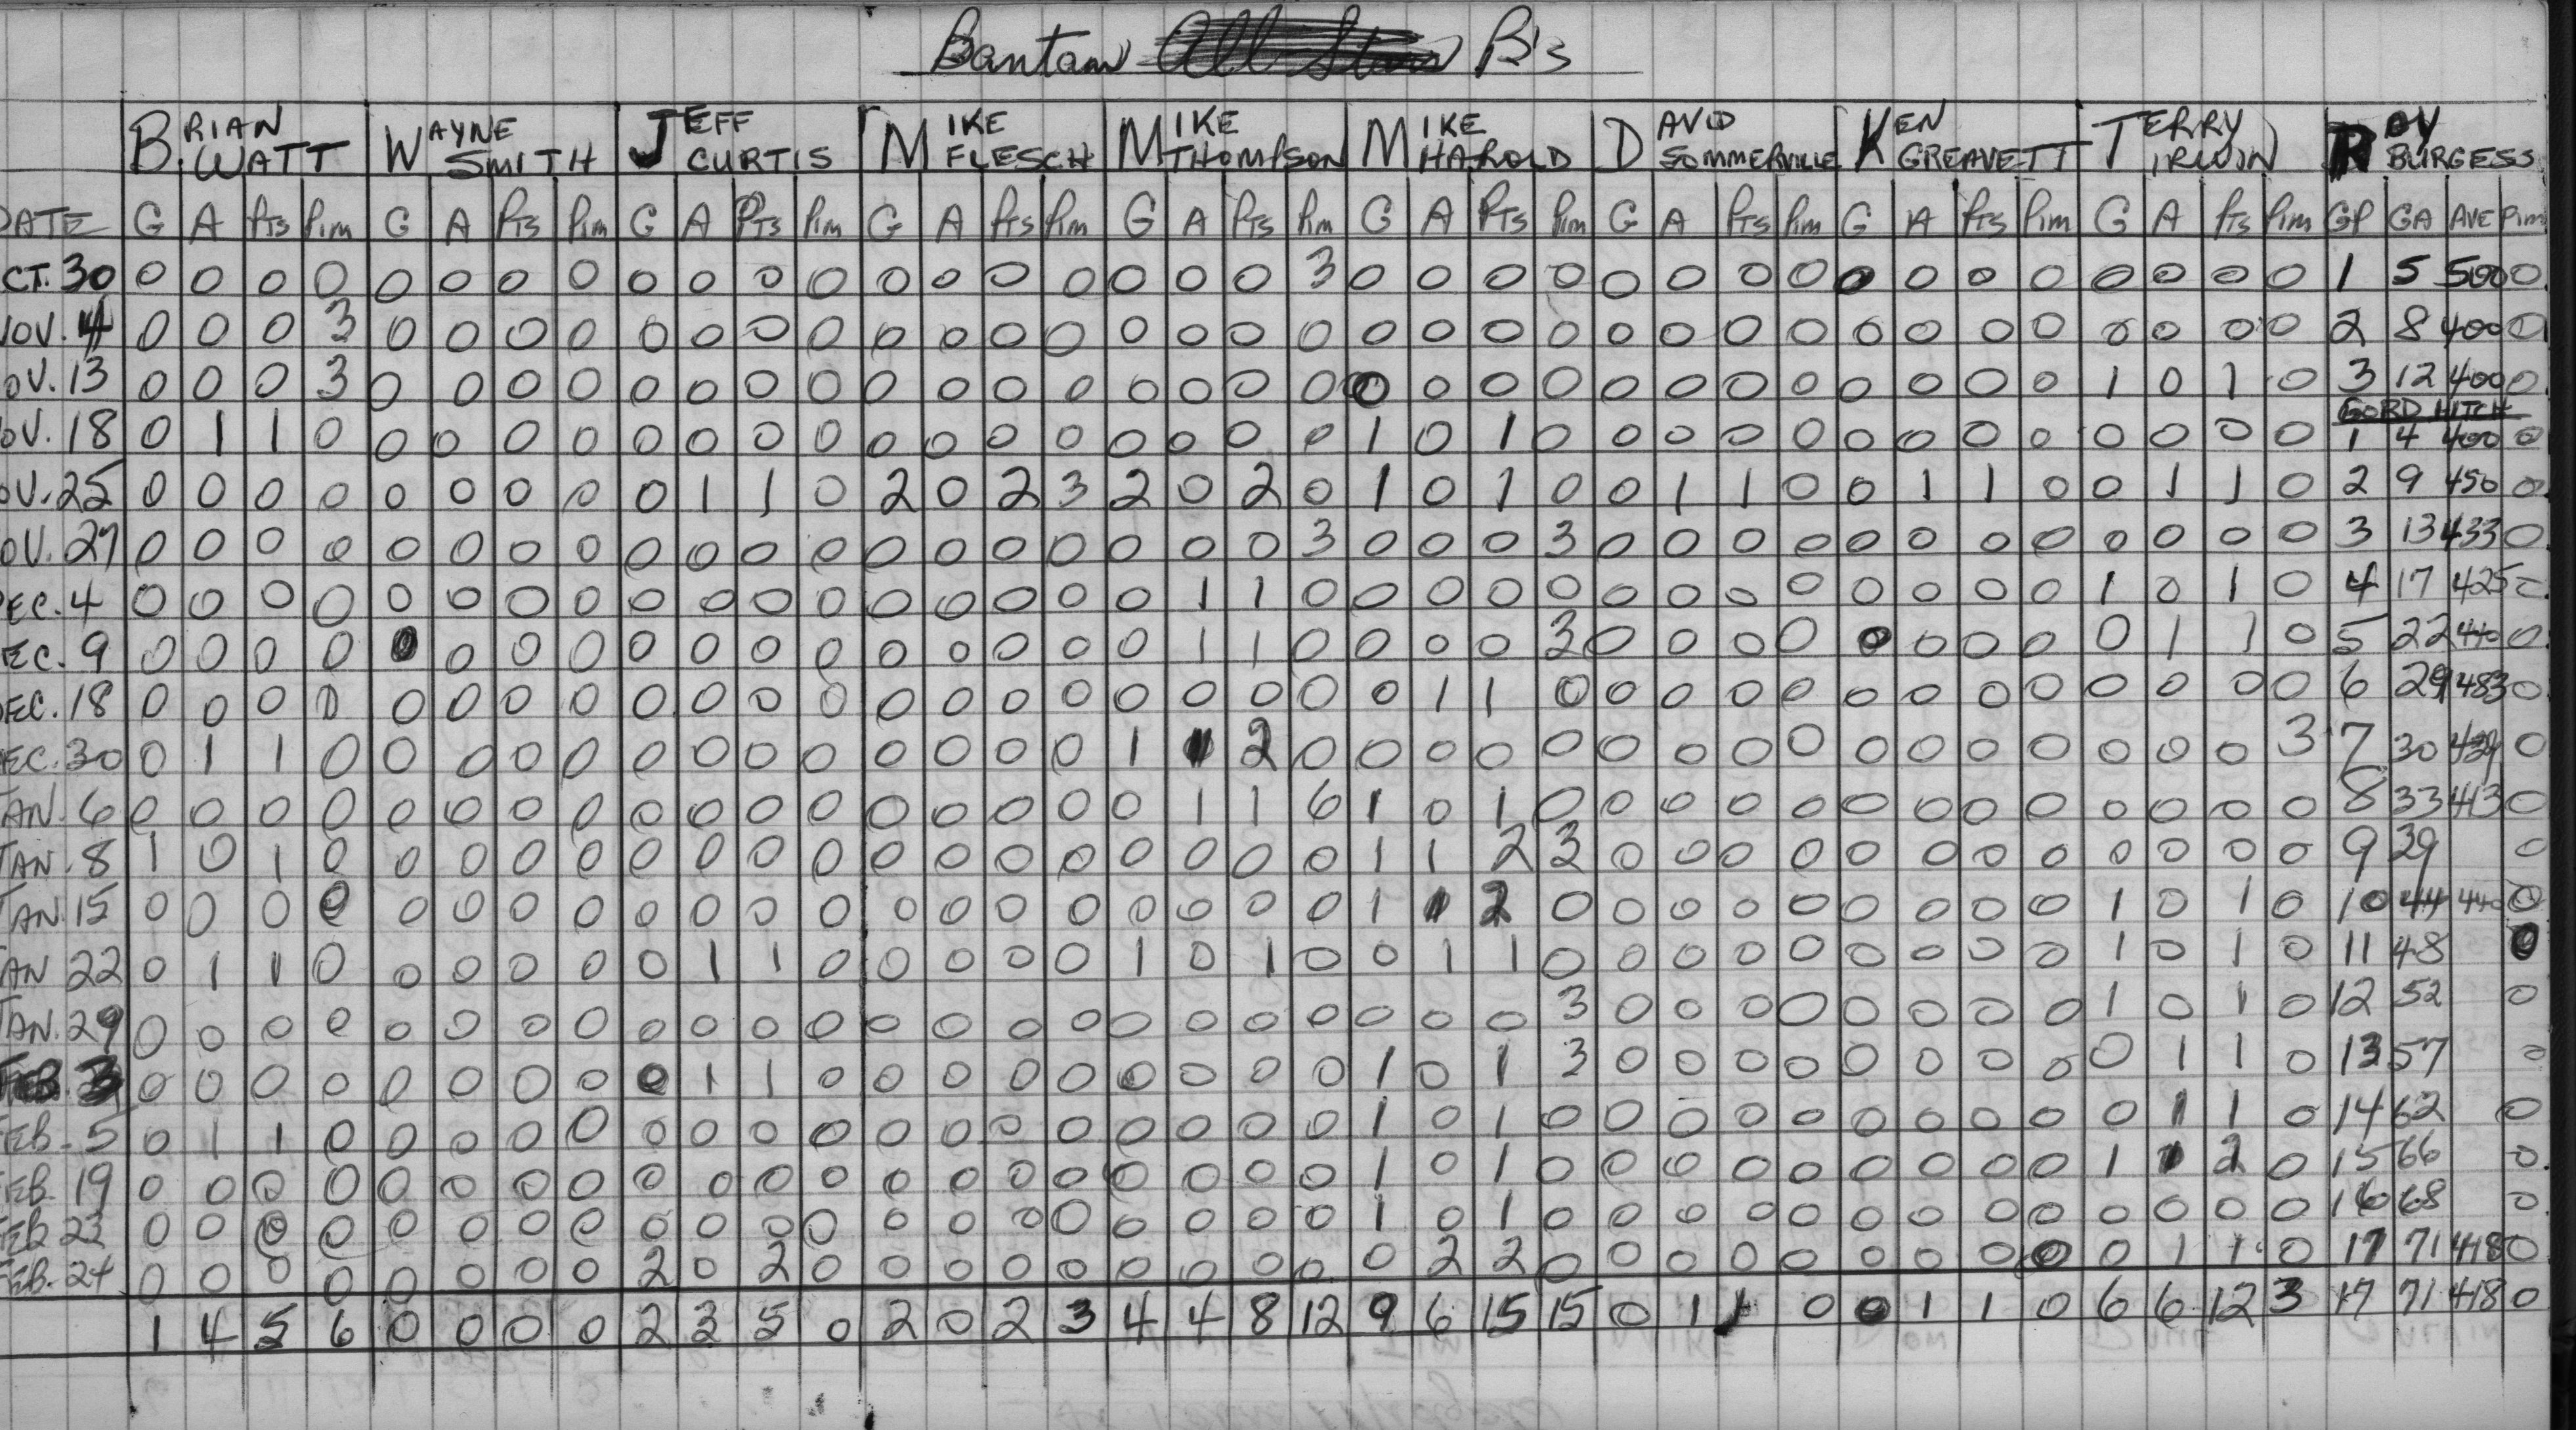 Bantam All Stars B's
BRIAN WATT WAYNE SMITH JEFF CURTIS MIKE FLESCH MIKE THOMPSON MIKE HAROLD DAVID SOMMERVILLE KEN GREAVETT TERRY IRWIN ROY BURGESS
DATE G A Pts Pim G A Pts Pim G A Pts Pim G A Pts Pim G A Pts Pim G A Pts Pim G A Pts Pim G A Pts Pim G A Pts Pim GP GA AVE Pim
CT. 30 0 0 0 0 0 0 0 0 0 0 0 0 0 0 0 0 0 0 0 3 0 0 0 0 0 0 0 0 0 0 0 0 0 0 0 0 1 5 500 0
NOV. 4 0 0 0 3 0 0 0 0 0 0 0 0 0 0 0 0 0 0 0 0 0 0 0 0 0 0 0 0 0 0 0 0 0 0 0 0 2 8 400 0
OV. 13 0 0 0 3 0 0 0 0 0 0 0 0 0 0 0 0 0 0 0 0 0 0 0 0 0 0 0 0 0 0 0 0 1 0 1 0 3 12 400 0
GORD HITCH
OV. 18 0 1 1 0 0 0 0 0 0 0 0 0 0 0 0 0 0 0 0 0 1 0 1 0 0 0 0 0 0 0 0 0 0 0 0 0 1 4 400 0
OV. 25 0 0 0 0 0 0 0 0 0 1 1 0 2 0 2 3 2 0 2 0 1 0 1 0 0 1 1 0 0 1 1 0 0 1 1 0 2 9 450 0
OV. 27 0 0 0 0 0 0 0 0 0 0 0 0 0 0 0 0 0 0 0 3 0 0 0 3 0 0 0 0 0 0 0 0 0 0 0 0 3 13 433 0
EC. 4 0 0 0 0 0 0 0 0 0 0 0 0 0 0 0 0 0 1 1 0 0 0 0 0 0 0 0 0 0 0 0 0 1 0 1 0 4 17 425 0
EC. 9 0 0 0 0 0 0 0 0 0 0 0 0 0 0 0 0 0 1 1 0 0 0 0 3 0 0 0 0 0 0 0 0 0 1 1 0 5 22 440 0
EC. 18 0 0 0 0 0 0 0 0 0 0 0 0 0 0 0 0 0 0 0 0 0 1 1 0 0 0 0 0 0 0 0 0 0 0 0 0 6 29 483 0
EC. 30 0 1 1 0 0 0 0 0 0 0 0 0 0 0 0 0 1 1 2 0 0 0 0 0 0 0 0 0 0 0 0 0 0 0 0 3 7 30 429 0
AN. 6 0 0 0 0 0 0 0 0 0 0 0 0 0 0 0 0 0 1 1 6 1 0 1 0 0 0 0 0 0 0 0 0 0 0 0 0 8 33 413 0
JAN. 8 1 0 1 0 0 0 0 0 0 0 0 0 0 0 0 0 0 0 0 0 1 1 2 3 0 0 0 0 0 0 0 0 0 0 0 0 9 39 0
JAN. 15 0 0 0 0 0 0 0 0 0 0 0 0 0 0 0 0 0 0 0 0 1 1 2 0 0 0 0 0 0 0 0 0 1 0 1 0 10 44 440 0
AN 22 0 1 1 0 0 0 0 0 0 1 1 0 0 0 0 0 1 0 1 0 0 1 1 0 0 0 0 0 0 0 0 0 1 0 1 0 11 48 0
JAN. 29 0 0 0 0 0 0 0 0 0 0 0 0 0 0 0 0 0 0 0 0 0 0 0 3 0 0 0 0 0 0 0 0 1 0 1 0 12 52 0
FEB 3 0 0 0 0 0 0 0 0 0 1 1 0 0 0 0 0 0 0 0 0 1 0 1 3 0 0 0 0 0 0 0 0 0 1 1 0 13 57 0
FEB. 5 0 1 1 0 0 0 0 0 0 0 0 0 0 0 0 0 0 0 0 0 1 0 1 0 0 0 0 0 0 0 0 0 0 1 1 0 14 62 0
FEB. 19 0 0 0 0 0 0 0 0 0 0 0 0 0 0 0 0 0 0 0 0 1 0 1 0 0 0 0 0 0 0 0 0 1 1 2 0 15 66 0
FEB 23 0 0 0 0 0 0 0 0 0 0 0 0 0 0 0 0 0 0 0 0 1 0 1 0 0 0 0 0 0 0 0 0 0 0 0 0 16 68 0
FEB. 24 0 0 0 0 0 0 0 0 2 0 2 0 0 0 0 0 0 0 0 0 0 2 2 0 0 0 0 0 0 0 0 0 0 1 1 0 17 71 418 0
1 4 5 6 0 0 0 0 2 3 5 0 2 0 2 3 4 4 8 12 9 6 15 15 0 1 1 0 0 1 1 0 6 6 12 3 17 71 418 0